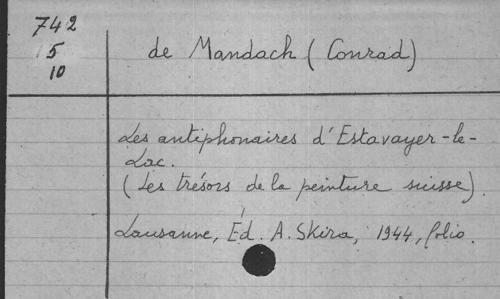 742
5
10
de Mandach (Conrad)
Les antiphonaires d'Estavayer-le-
Lac.
(Les trésors de la peinture suisse).
Lausanne, Éd. A. Skira, 1944, folio.